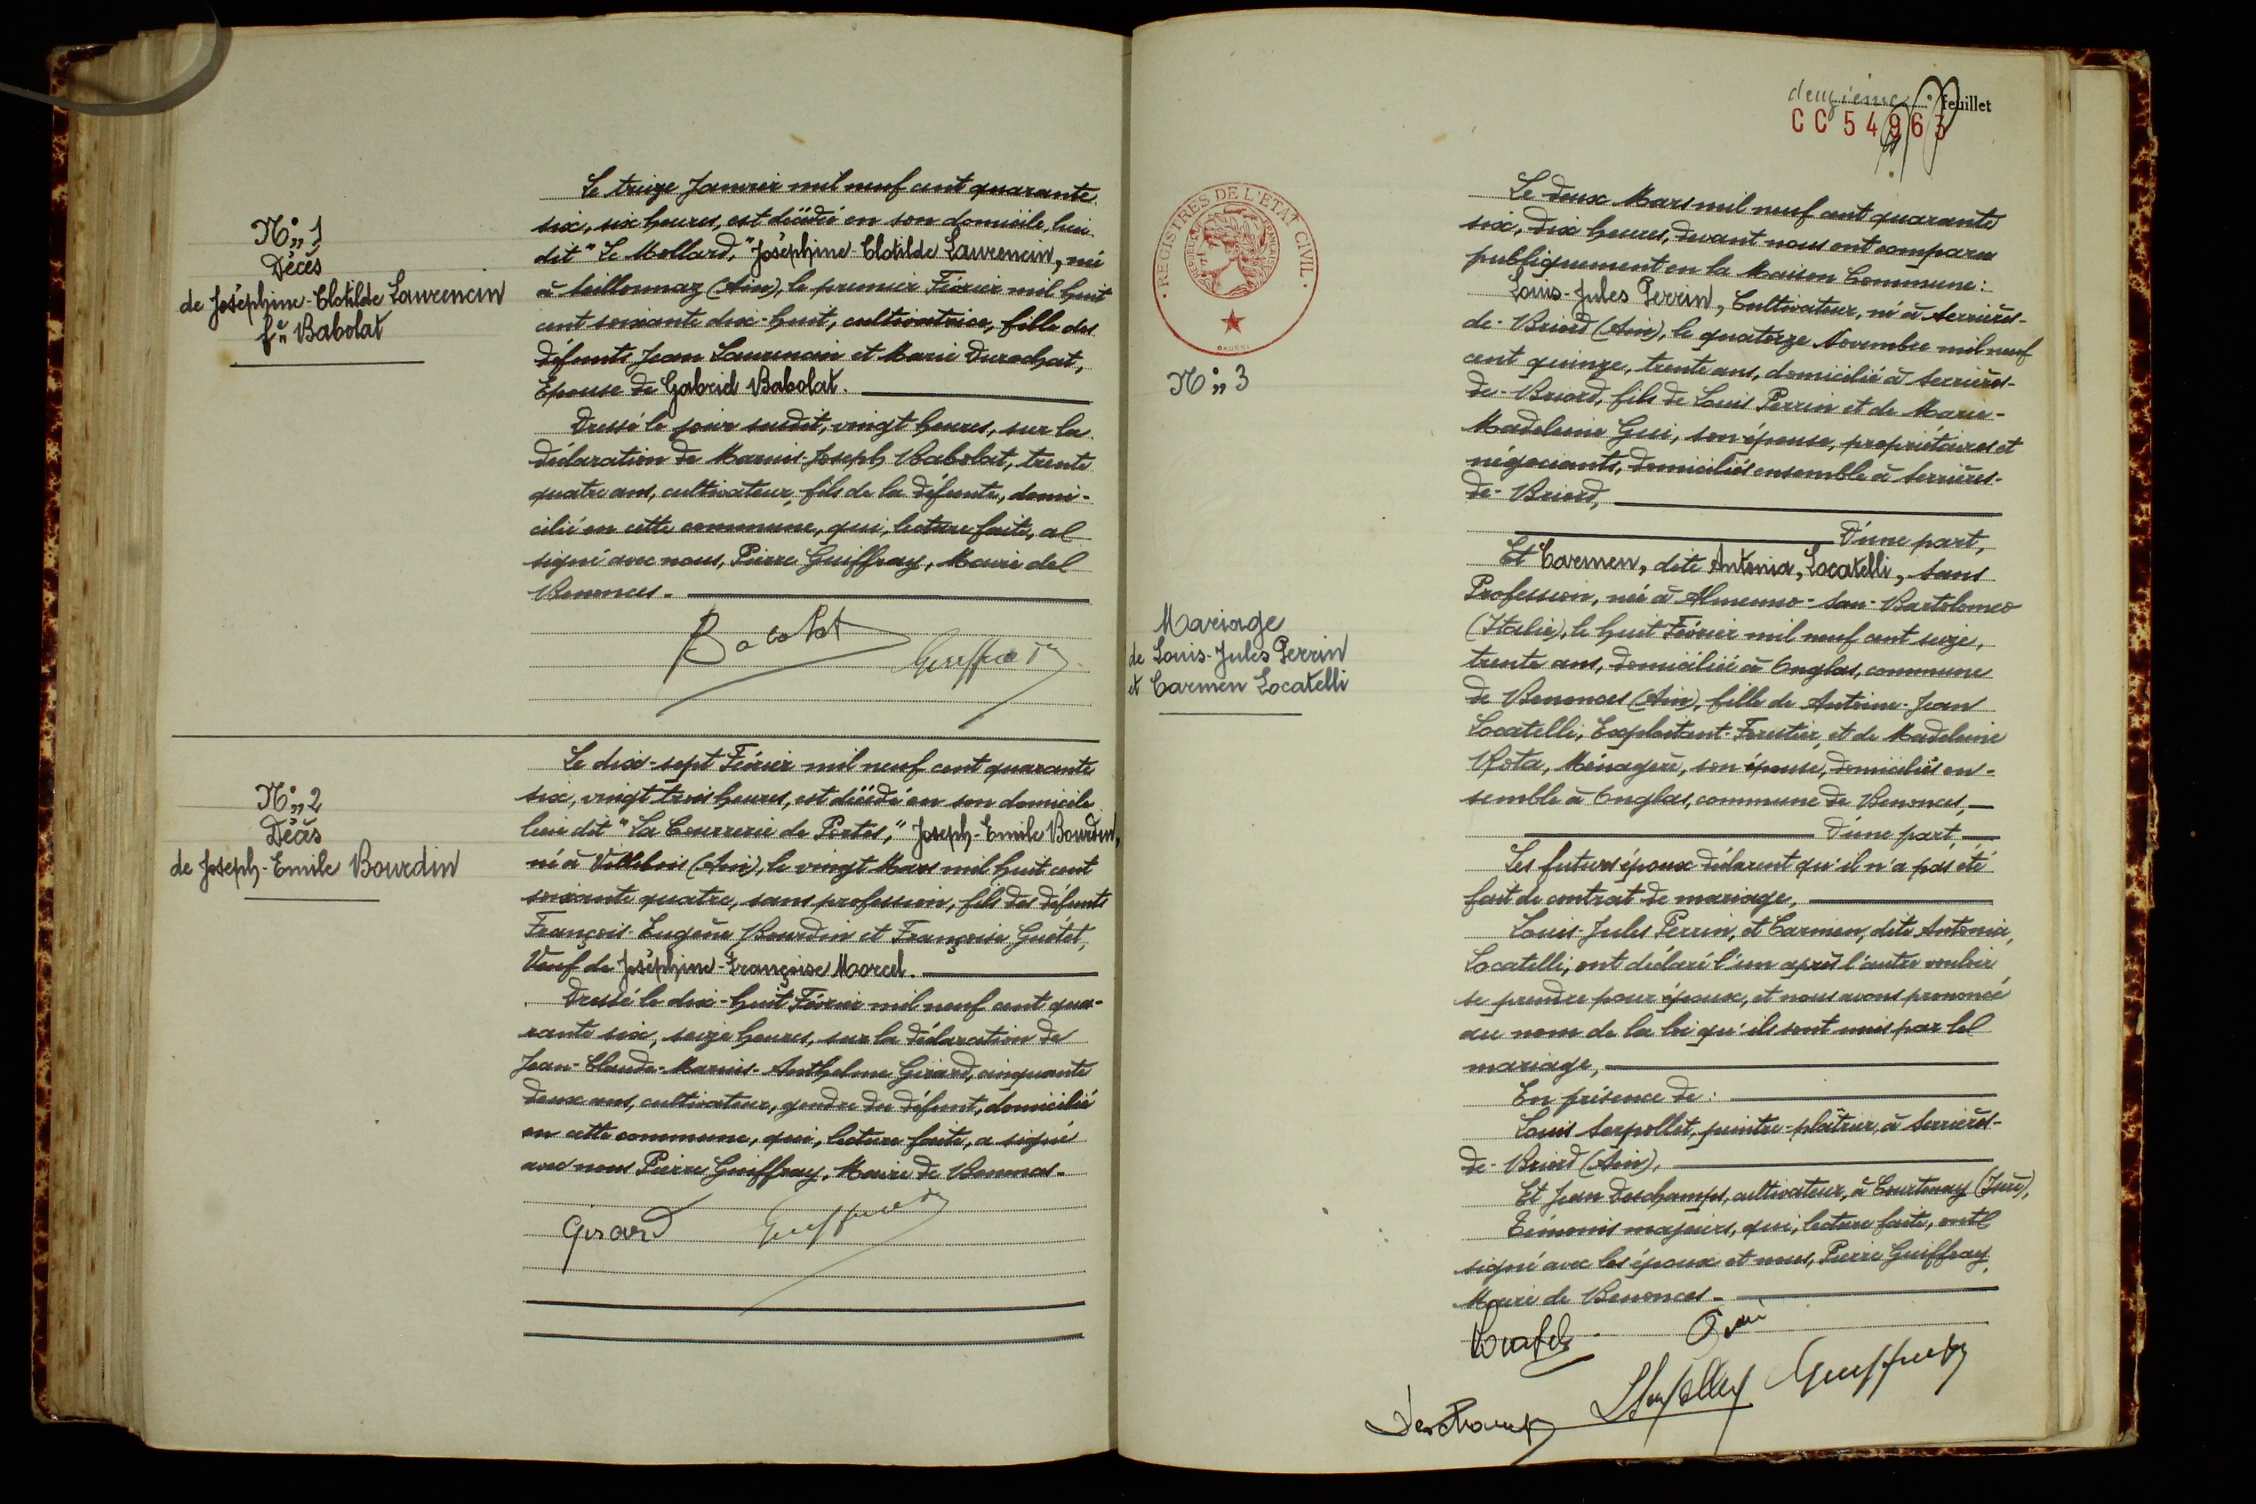 N° 1
Décès
de Joséphine-Clotilde Laurencin
fe Babolat
Le treize Janvier mil neuf cent quarante
six, six heures, est décédée en son domicile, lieu
dit "Le Mollard," Joséphine-Clotilde Laurencin, née
à Seillonnaz (Ain), le premier Février mil huit
cent soixante dix-huit, cultivatrice, fille des
défunts Jean Laurencin et Marie Durochat,
Epouse de Gabriel Babolat.
Dressé le jour susdit, vingt heures, sur la
déclaration de Marius-Joseph Babolat, trente
quatre ans, cultivateur, fils de la défunte, domi-
cilié en cette commune, qui, lecture faite, a
signé avec nous, Pierre Guiffray, Maire de
Benonces.
Babolat
Guiffray
N° 2
Décès
de Joseph-Emile Bourdin
Le dix-sept Février mil neuf cent quarante
six, vingt trois heures, est décédé en son domicile
lieu dit "La Courrerie de Portes," Joseph-Emile Bourdin,
né à Villebois (Ain), le vingt Mars mil huit cent
soixante quatre, sans profession, fils des défunts
François-Eugène Bourdin et Françoise Guétet,
Veuf de Joséphine-Françoise Marcel.
Dressé le dix-huit Février mil neuf cent qua-
rante six, seize heures, sur la déclaration de
Jean-Claude-Marius-Anthelme Girard, cinquante
deux ans, cultivateur, gendre du défunt, domicilié
en cette commune, qui, lecture faite, a signé
avec nous Pierre Guiffray, Maire de Benonces.
Girard
Guiffray
deuxième feuillet
CC 54963
REGISTRES DE L'ETAT CIVIL
N° 3
Mariage
de Louis-Jules Perrin
et Carmen Locatelli
Le deux Mars mil neuf cent quarante
six, dix heures, devant nous ont comparu
publiquement en la Maison Commune:
Louis-Jules Perrin, Cultivateur, né à Serrières-
de-Briord (Ain), le quatorze Novembre mil neuf
cent quinze, trente ans, domicilié à Serrières-
de-Briord, fils de Louis Perrin et de Marie-
Madeleine Gui, son épouse, propriétaires et
négociants, domiciliés ensemble à Serrières-
de-Briord,
D'une part,
Et Carmen, dite Antonia, Locatelli, sans
Profession, née à Almenno-San-Bartolomeo
(Italie), le huit Février mil neuf cent seize,
trente ans, domiciliée à Onglas, commune
de Benonces (Ain), fille de Antoine-Jean
Locatelli, Exploitant-Forestier, et de Madeleine
Rota, Ménagère, son épouse, domiciliés en-
semble à Onglas, commune de Benonces,
D'une part,
Les futurs époux déclarent qu'il n'a pas été
fait de contrat de mariage,
Louis-Jules Perrin, et Carmen, dite Antonia,
Locatelli, ont déclaré l'un après l'autre vouloir
se prendre pour époux, et nous avons prononcé
au nom de la loi qu'ils sont unis par le
mariage,
En présence de:
Louis Serpollet, peintre-plâtrier, à Serrières-
de-Briord (Ain),
Et Jean Deschamps, cultivateur, à Courtenay (Isère),
Témoins majeurs, qui, lecture faite, ont
signé avec les époux et nous, Pierre Guiffray,
Maire de Benonces.
Guiffray
Deschamps